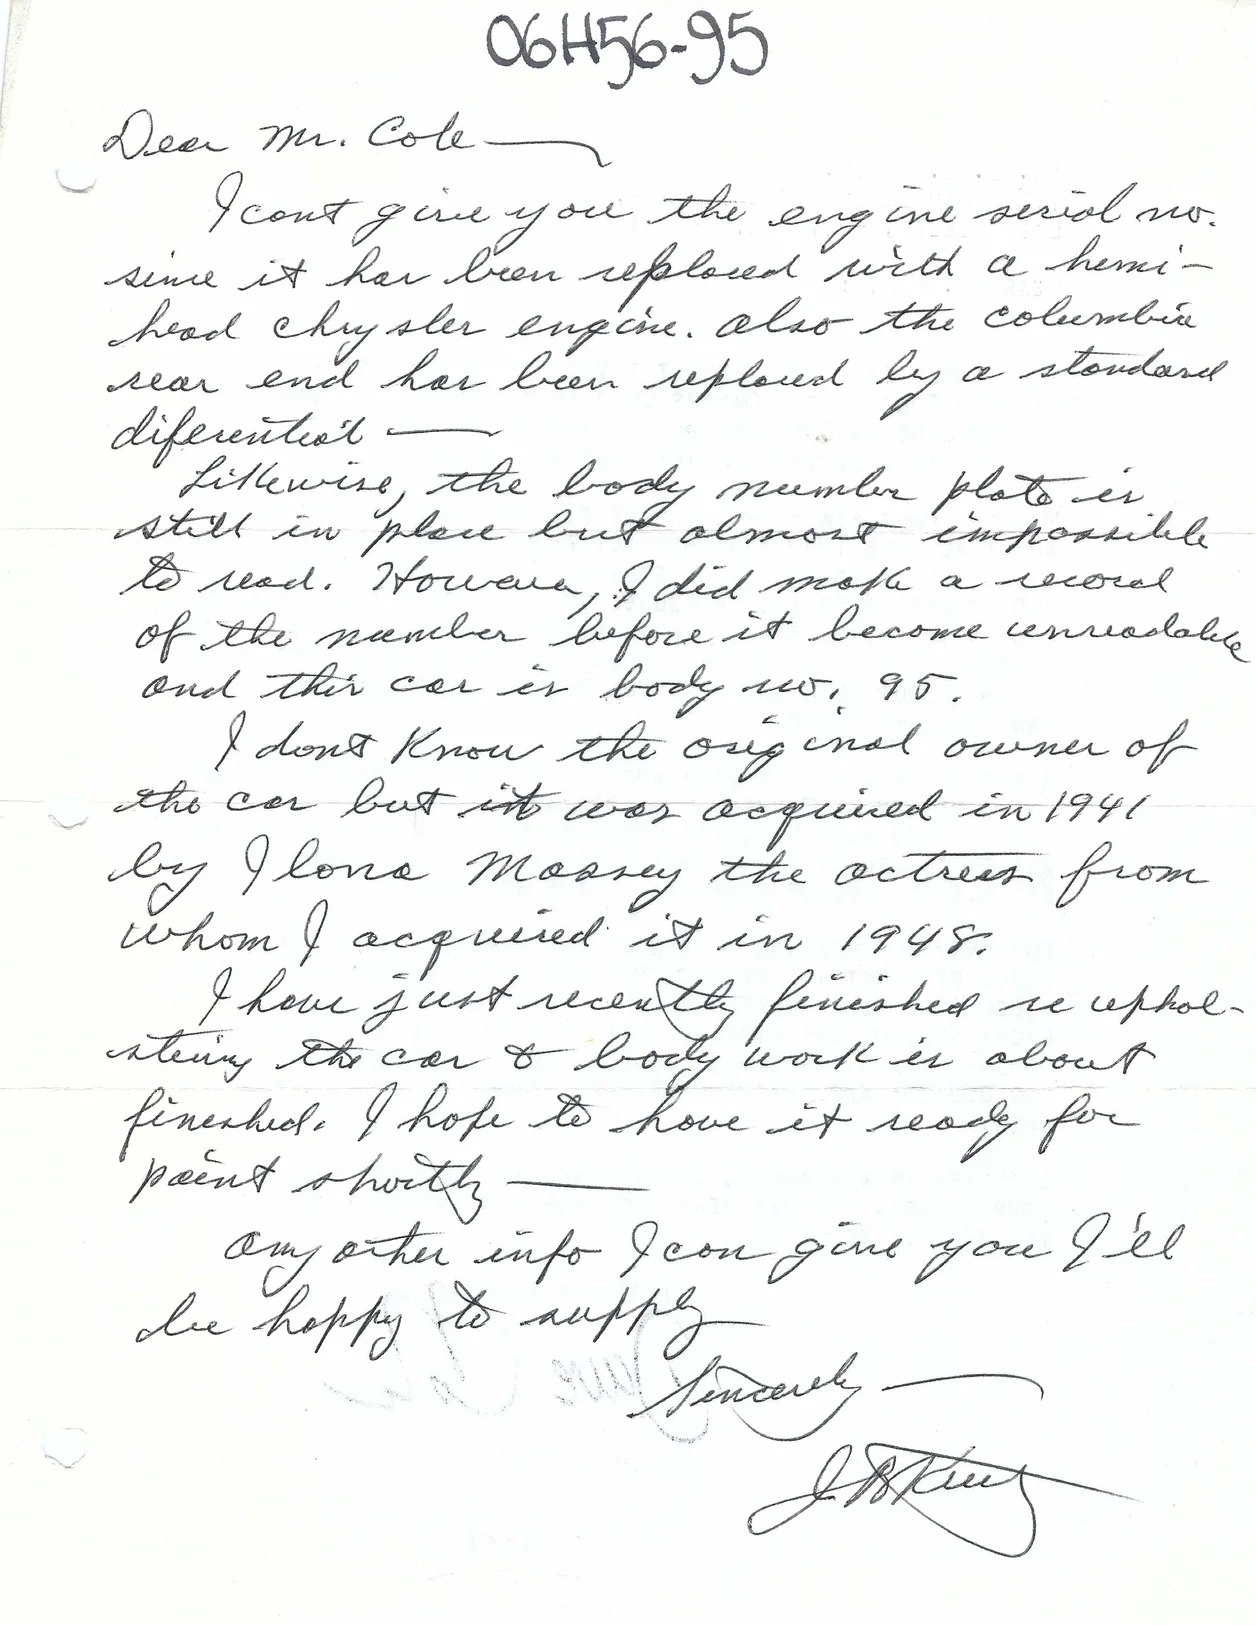 06H56-95
Dear Mr. Cole —
I cant give you the engine serial no.
since it has been replaced with a hemi-
head chrysler engine. also the columbia
rear end has been replaced by a standard
diferential —
Likewise, the body number plate is
still in place but almost impossible
to read. However, I did make a record
of the number before it become unreadable
and this car is body no. 95.
I dont know the original owner of
the car but it was acquired in 1941
by Ilona Massey the actress from
whom I acquired it in 1948.
I have just recently finished re uphol-
stering the car & body work is about
finished. I hope to have it ready for
paint shortly —
any other info I can give you I'll
be happy to supply
Sincerely —
J. B.